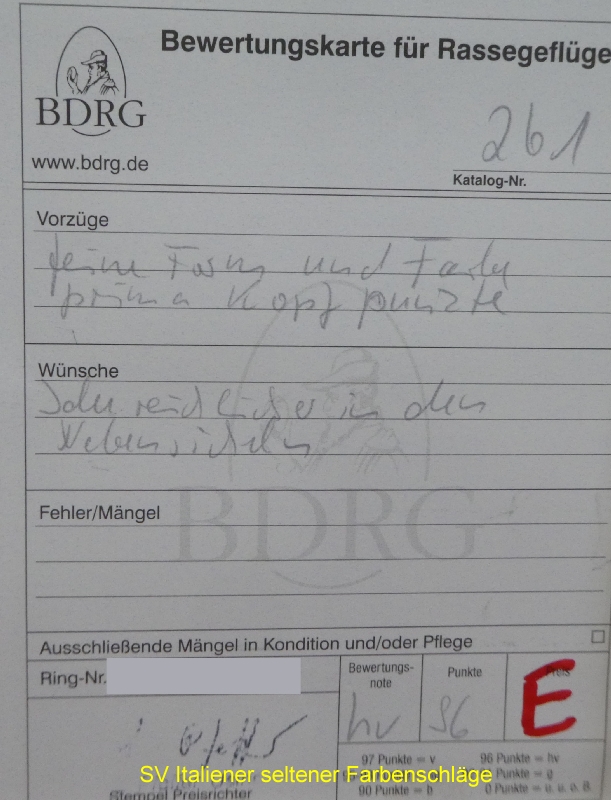 Bewertungskarte für Rassegeflüge
BDRG
www.bdrg.de
261
Katalog-Nr.
Vorzüge
feine Form und Farbe
prima Kopfpunkte
Wünsche
reichlicher in den
Nebensicheln
BDRG
Fehler/Mängel
Ausschließende Mängel in Kondition und/oder Pflege
Ring-Nr.
Bewertungs-
note
Punkte
Preis
hv 96 E
97 Punkte = v 96 Punkte = hv
90 Punkte = b 0 Punkte = u. o. B
SV Italiener seltener Farbenschläge
Stempel Preisrichter